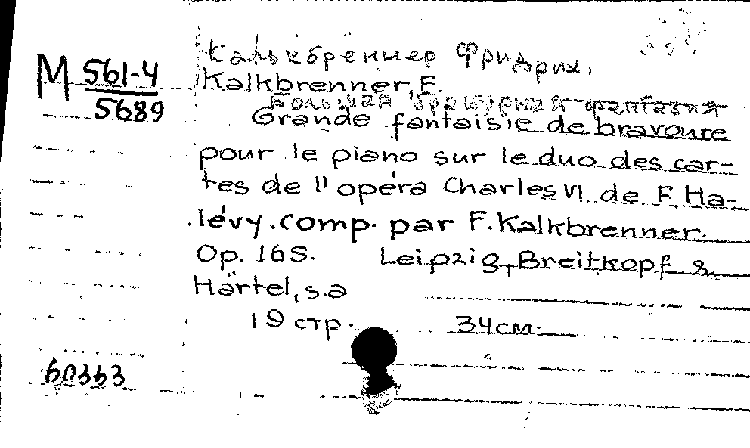 Калькбреннер Фридрих.
M 561-4
5689
Kalkbrenner, F.
Большая бравурная фантазия
Grande fantaisie de bravoure
pour le piano sur le duo des car-
tes de l'opéra Charles VI de F. Ha-
lévy. comp. par F. Kalkbrenner.
Op. 165. Leipzig, Breitkopf &
Härtel, s.a
19 стр. 34см.
60353